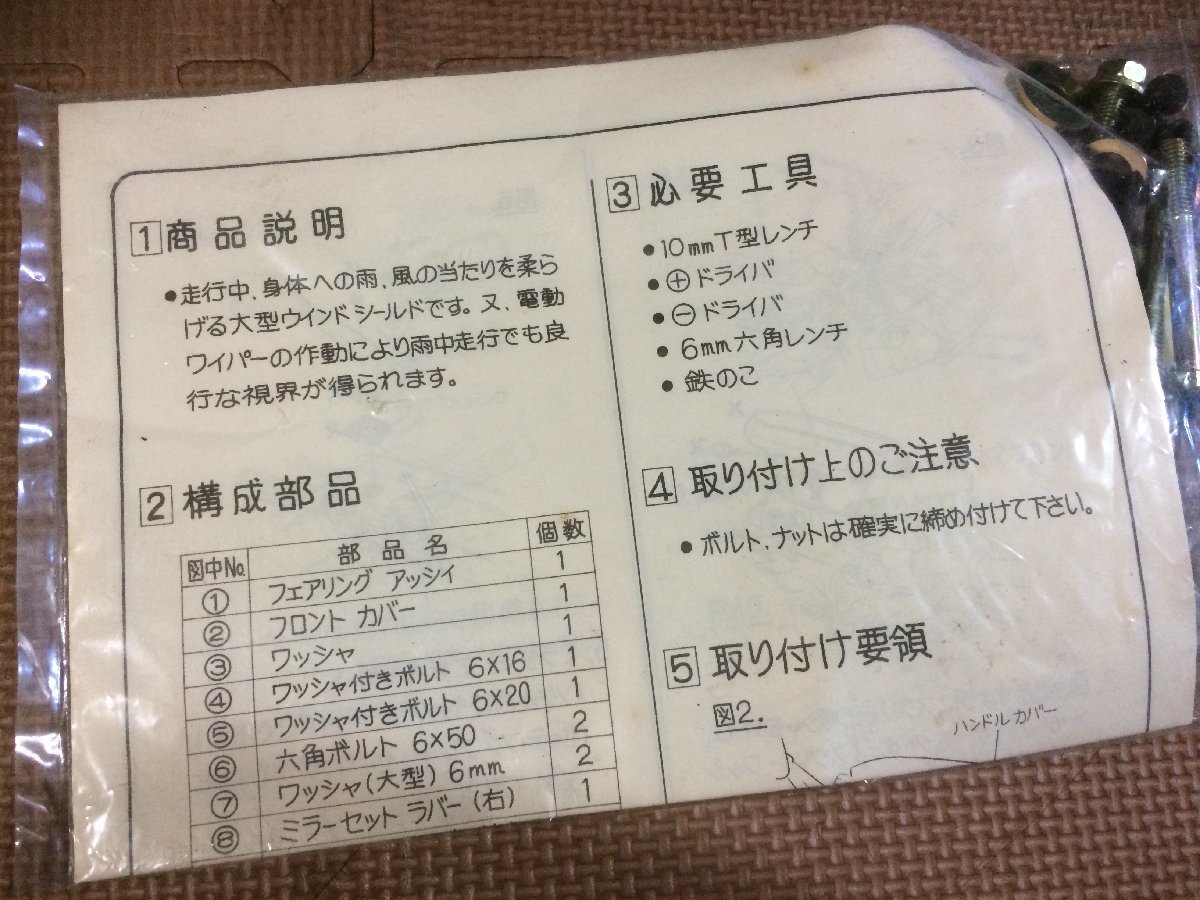 1 商品説明
●走行中、身体への雨、風の当たりを柔ら
げる大型ウインドシールドです。又、電動
ワイパーの作動により雨中走行でも良
行な視界が得られます。
2 構成部品
図中No. 部品名 個数
① フェアリング アッシィ 1
② フロント カバー 1
③ ワッシャ 1
④ ワッシャ付きボルト 6×16 1
⑤ ワッシャ付きボルト 6×20 1
⑥ 六角ボルト 6×50 2
⑦ ワッシャ(大型) 6mm 2
⑧ ミラーセット ラバー(右) 1
3 必要工具
●10mmT型レンチ
●⊕ドライバ
●⊖ドライバ
●6mm六角レンチ
●鉄のこ
4 取り付け上のご注意
●ボルト、ナットは確実に締め付けて下さい。
5 取り付け要領
図2.
ハンドルカバー